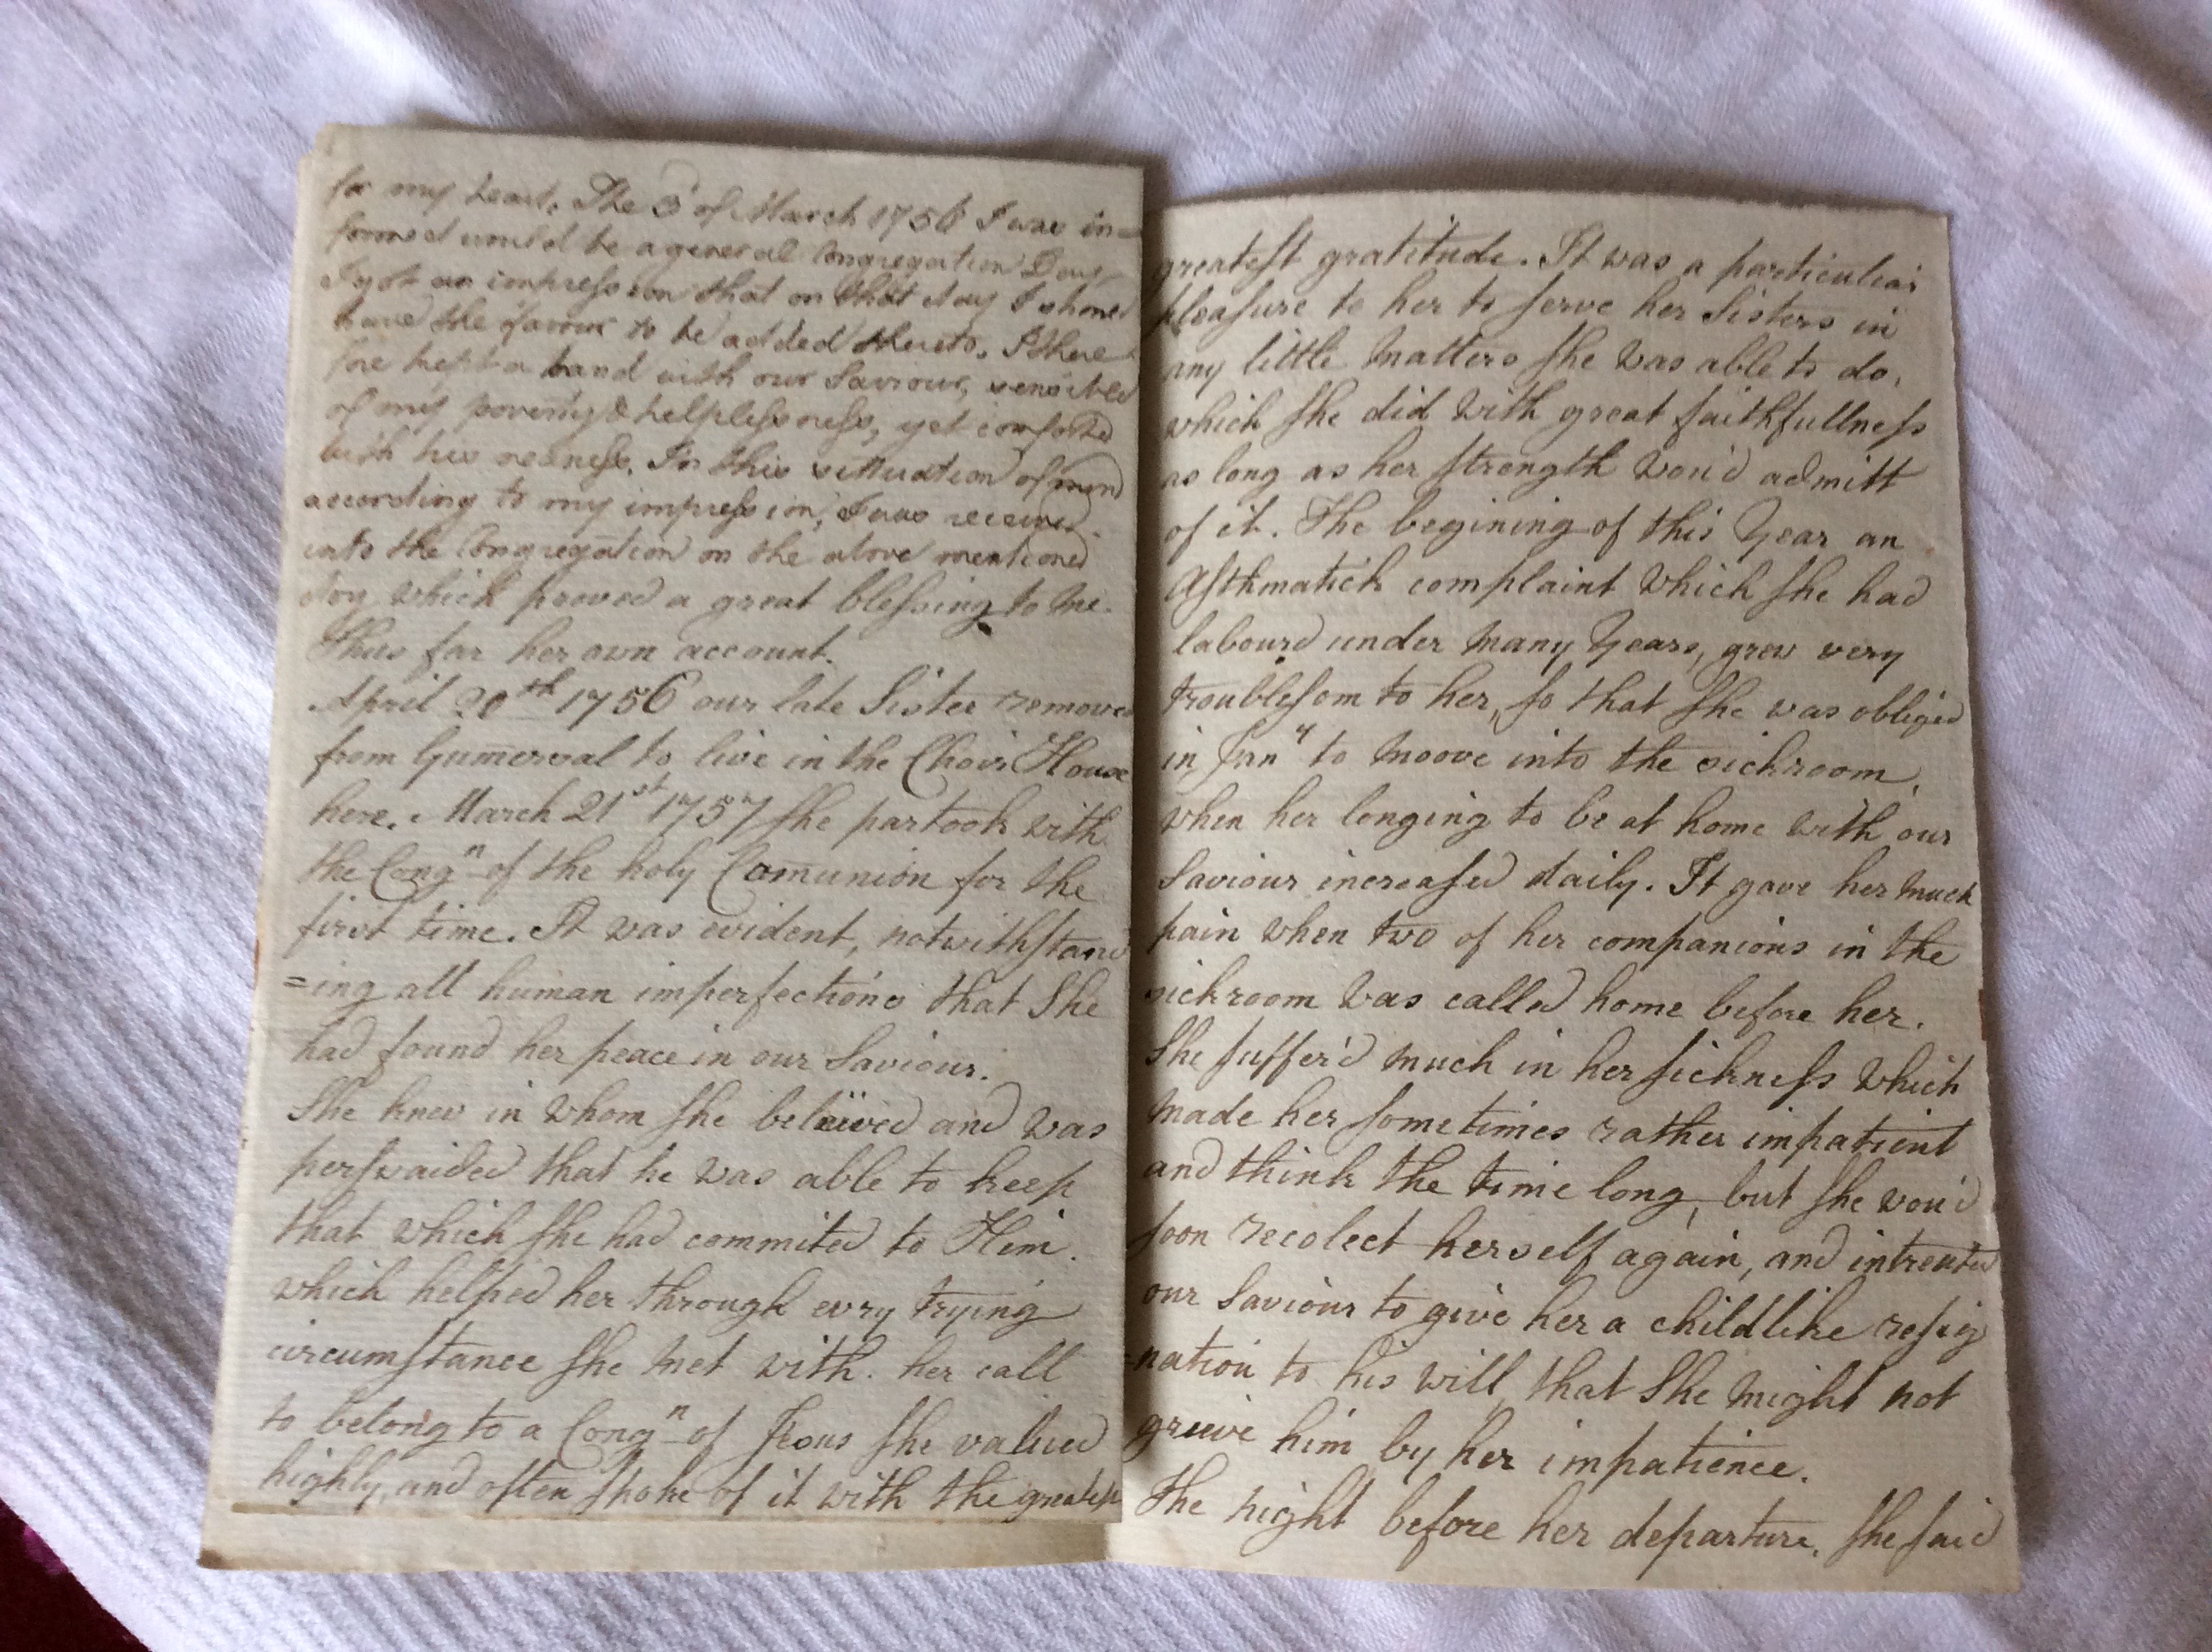 for my heart. The 3d of March 1756 I was in=
formed would be a general Congregation Day,
I got an impression that on that day I shoud
have the favour to be added thereto. I there
fore kept a band with our Saviour, sensible
of my poverty & helplessness, yet comforted
with his nearness. In this situation of mind
according to my impression, I was received
into the Congregation on the above mentioned
day which proved a great blessing to me.
Thus far her own account.
April 20th 1756 our late Sister removed
from Gumersal to live in the Choir House
here. March 21st 1757 she partook with
the Congn of the holy Comunion for the
first time. It was evident, notwithstand
=ing all human imperfections that She
had found her peace in our Saviour.
She knew in whom she beleived and was
perswaided that he was able to keep
that which she had commited to Him.
which helped her through evry trying
circumstance she met with. her call
to belong to a Congn of Jesus she valued
highly, and often spoke of it with the greatest
greatest gratitude. It was a particular
pleasure to her to serve her Sisters in
any little matters she was able to do,
which she did with great faithfullness
as long as her strength wou'd admitt
of it. The begining of this Year an
Asthmatick complaint which she had
labourd under many Years, grew very
troublesom to her, so that she was obliged
in Jany to moove into the sickroom,
when her longing to be at home with our
Saviour increased daily. It gave her much
pain when two of her companions in the
sickroom was called home before her.
She suffer'd much in her sickness which
made her sometimes rather impatient
and think the time long, but she wou'd
soon recolect herself again, and intreated
our Saviour to give her a childlike resig
=nation to his will, that She might not
greive him by her impatience.
The night before her departure, she said